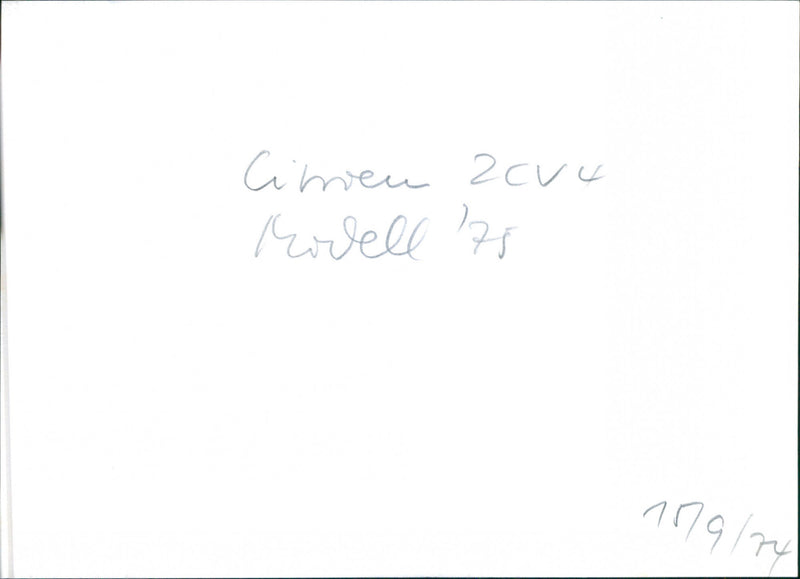 Citroen 2CV4
Modell '75
15/9/74